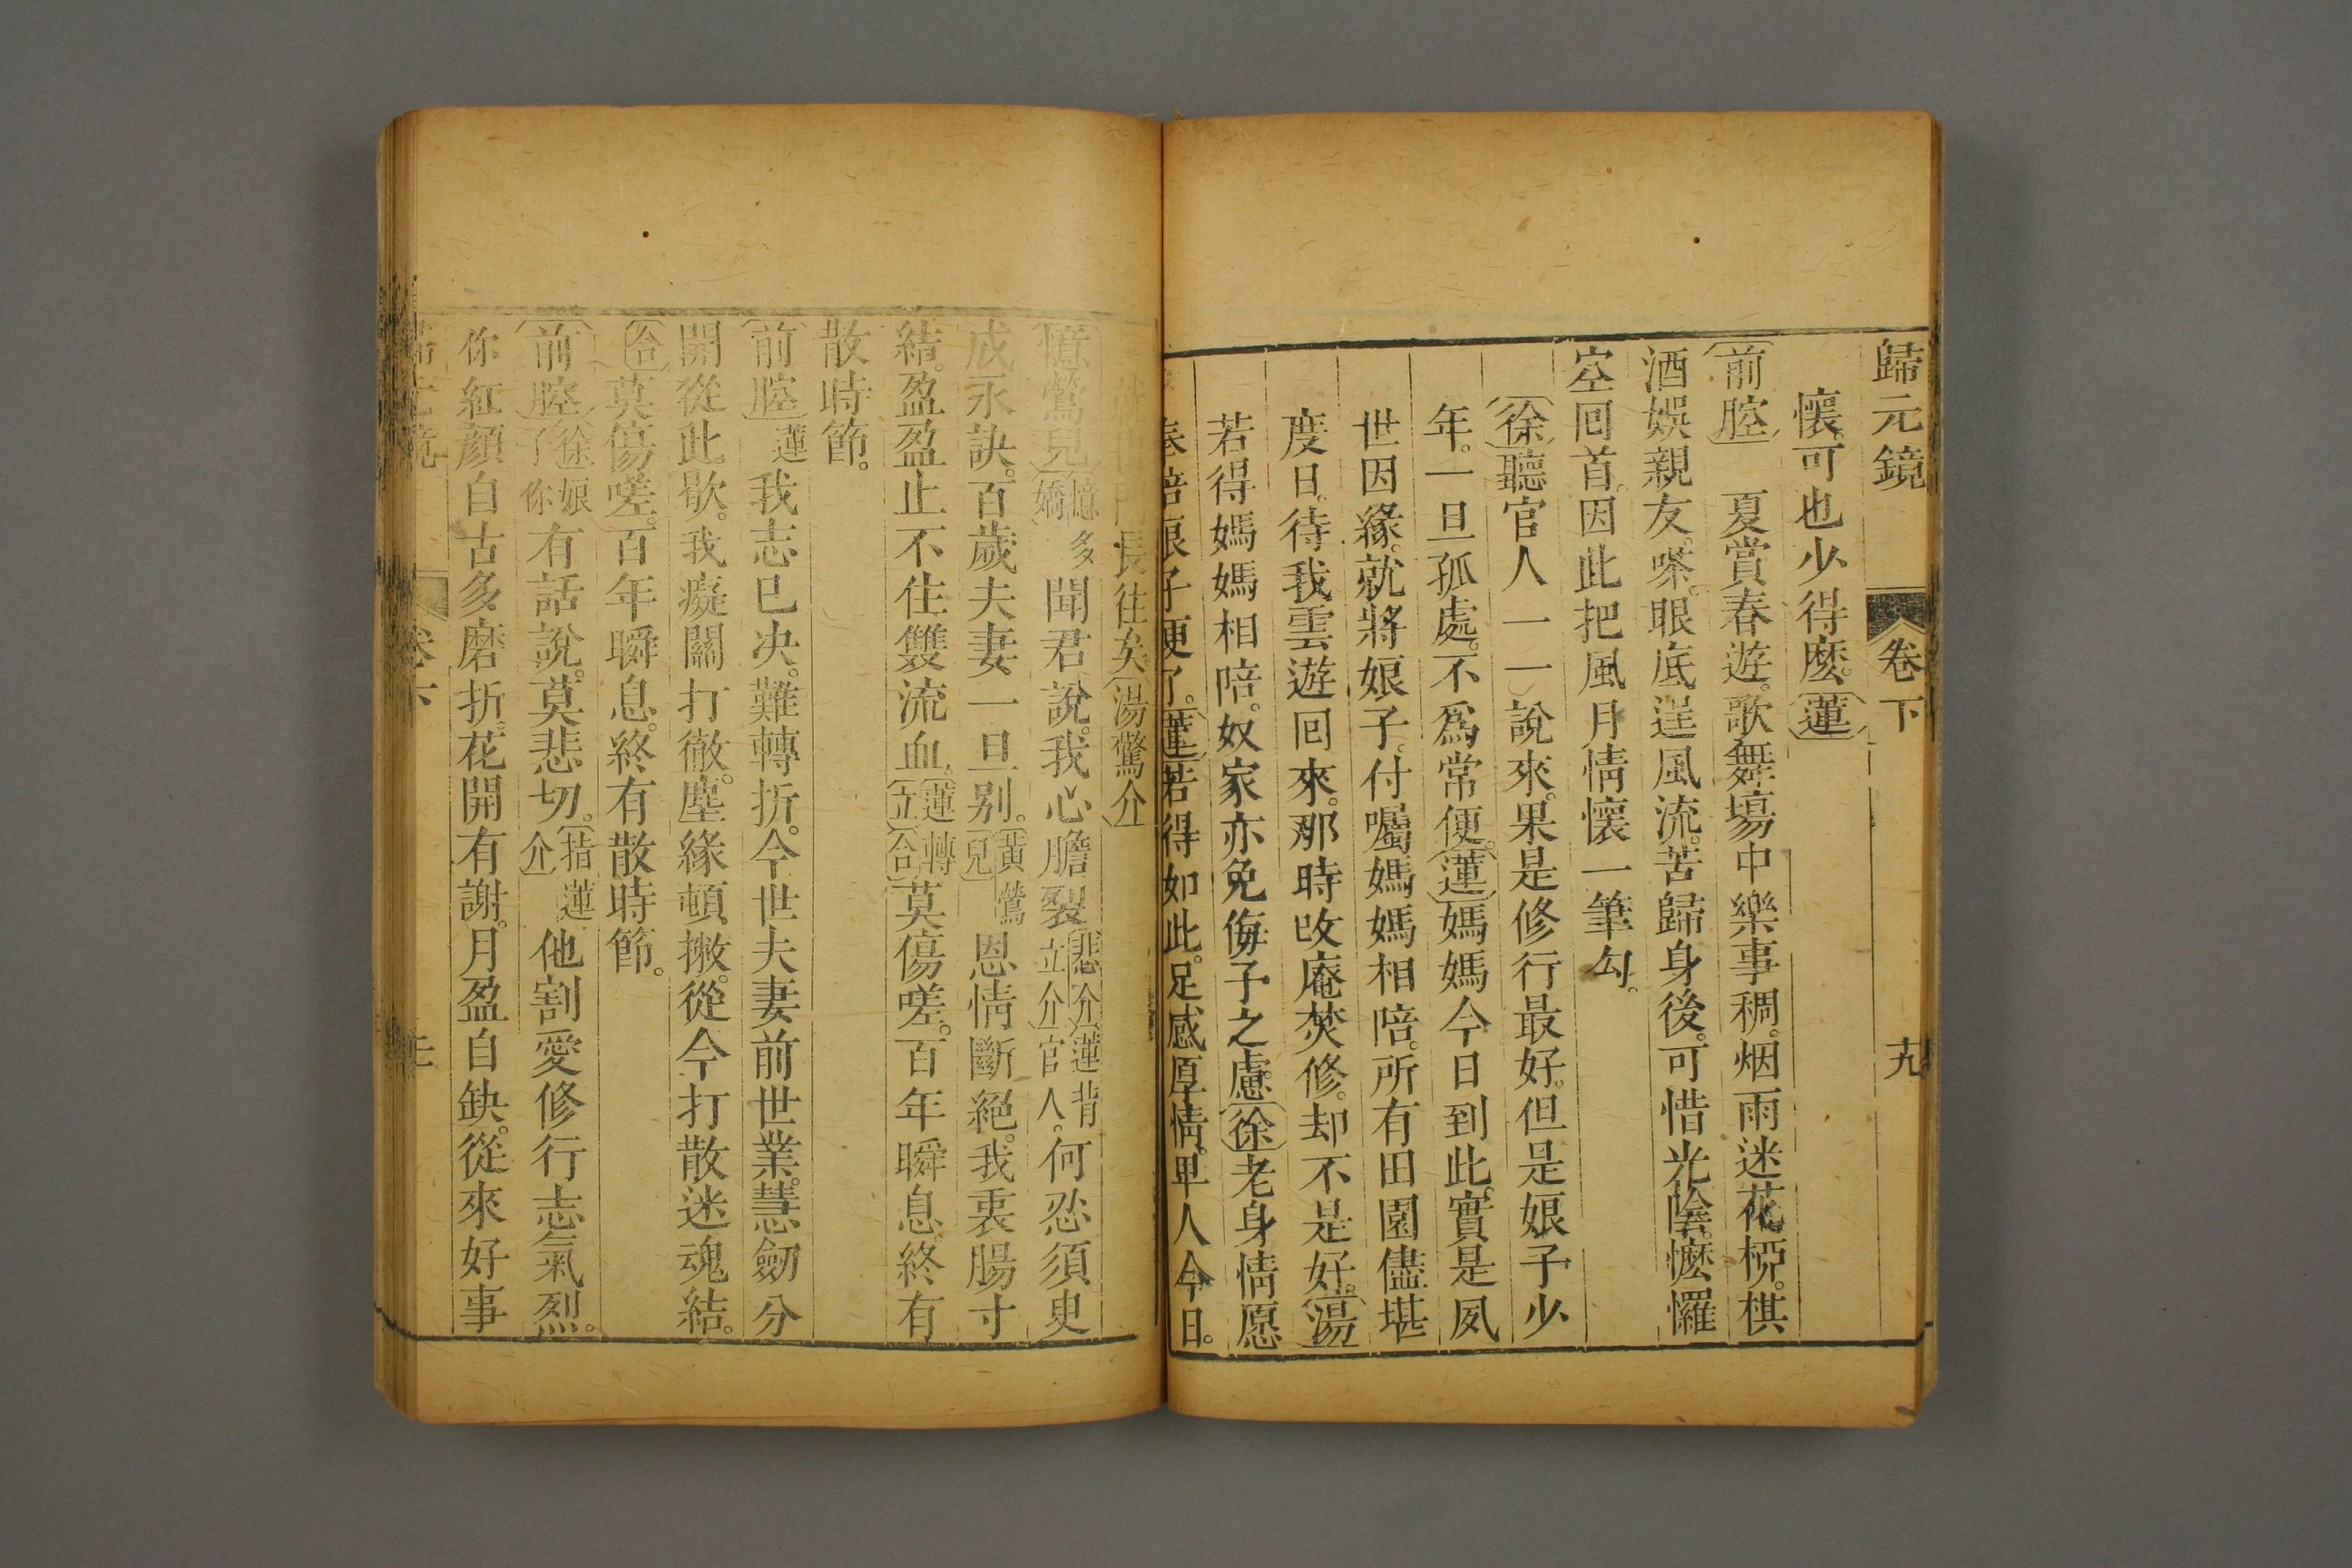 歸元鏡 卷下 十九
懷。可也少得麽。（蓮）
（前腔）夏賞春遊。歌舞場中樂事稠。烟雨迷花椏。棋
酒娛親友。嗏。眼底逞風流。苦歸身後。可惜光陰。懡㦬
空回首。因此把風月情懷一筆勾。
（徐）聽官人一一說來。果是修行最好。但是娘子少
年。一旦孤處。不爲常便。（蓮）媽媽今日到此。實是夙
世因緣。就將娘子。付囑媽媽相陪。所有田園儘堪
度日。待我雲遊回來。那時改庵焚修。却不是好。（湯）
若得媽媽相陪。奴家亦免侮予之慮。（徐）老身情愿
奉陪娘子便了。（蓮）若得如此。足感厚情。卑人今日。
長往矣（湯驚介）
（憶鶯兒）（憶多嬌）聞君說。我心膽裂（悲介）（蓮背立介）官人。何忍須臾
成永訣。百歲夫妻一旦别。（黃鶯兒）恩情斷絕。我裏腸寸
結。盈盈止不住雙流血。（蓮轉立）（合）莫傷嗟。百年瞬息。終有
散時節。
（前腔）蓮我志已决。難轉折。今世夫妻前世業。慧劒分
開從此歇。我癡關打徹。塵緣頓撇。從今打散迷魂結。
（合）莫傷嗟。百年瞬息。終有散時節。
（前腔）（徐）娘了你有話說。莫悲切。（指蓮介）他割愛修行志氣烈。
你紅顏自古多磨折。花開有謝。月盈自缺。從來好事
卷下